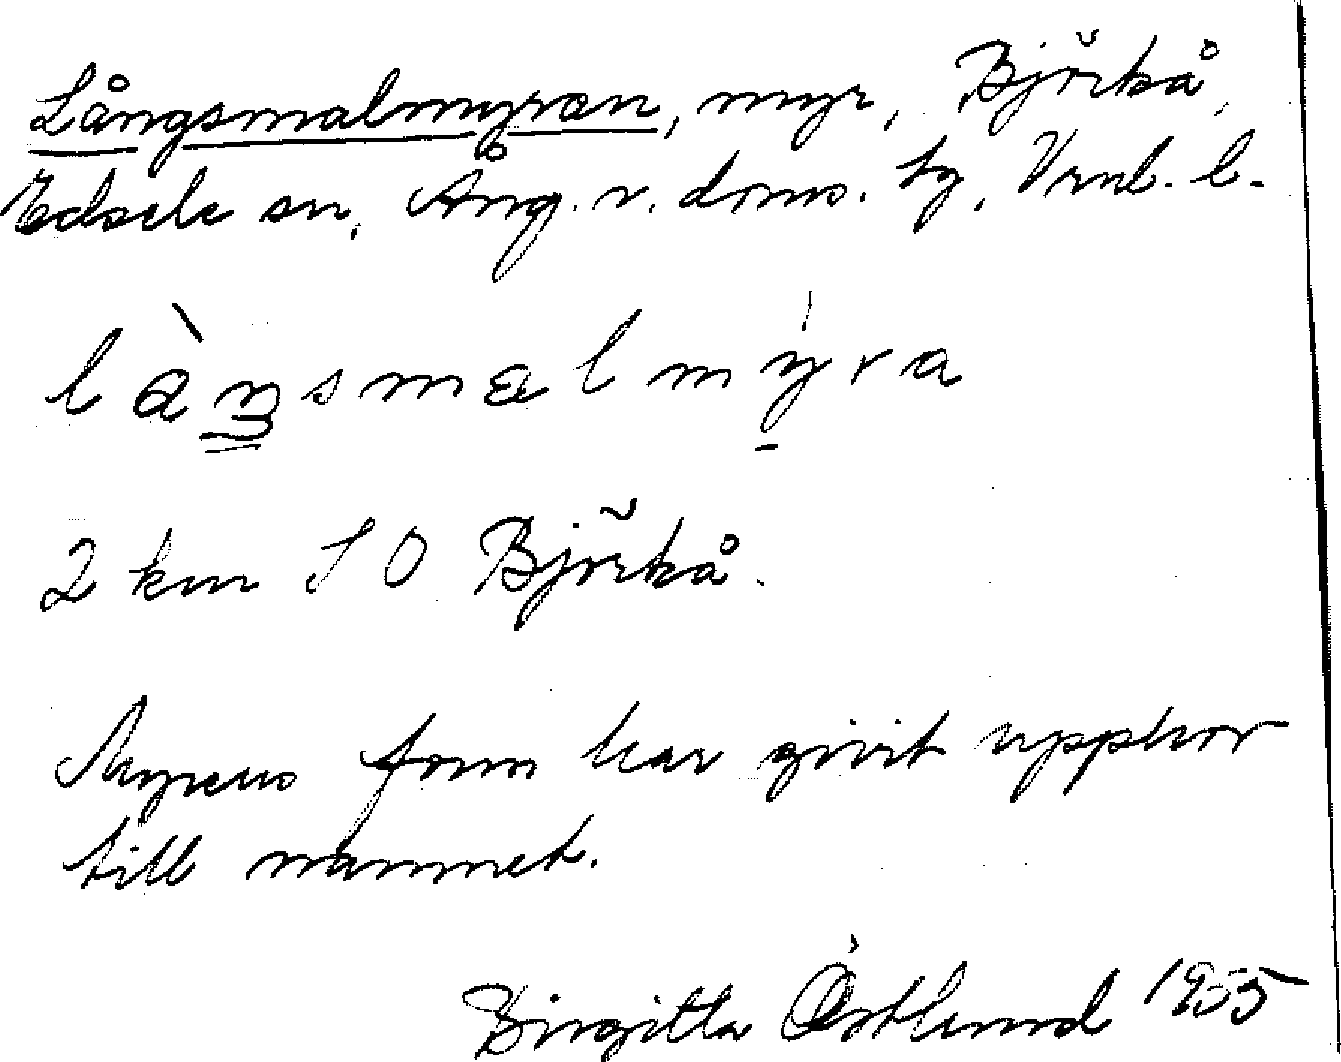 Långsmalmyran, myr, Björkå,
Edsele sn, Ång. v. doms. hg, Vrnl. l.
2 km SO Björkå.
Myrens form har givit upphov
till namnet.
Birgitta Östlund 1955